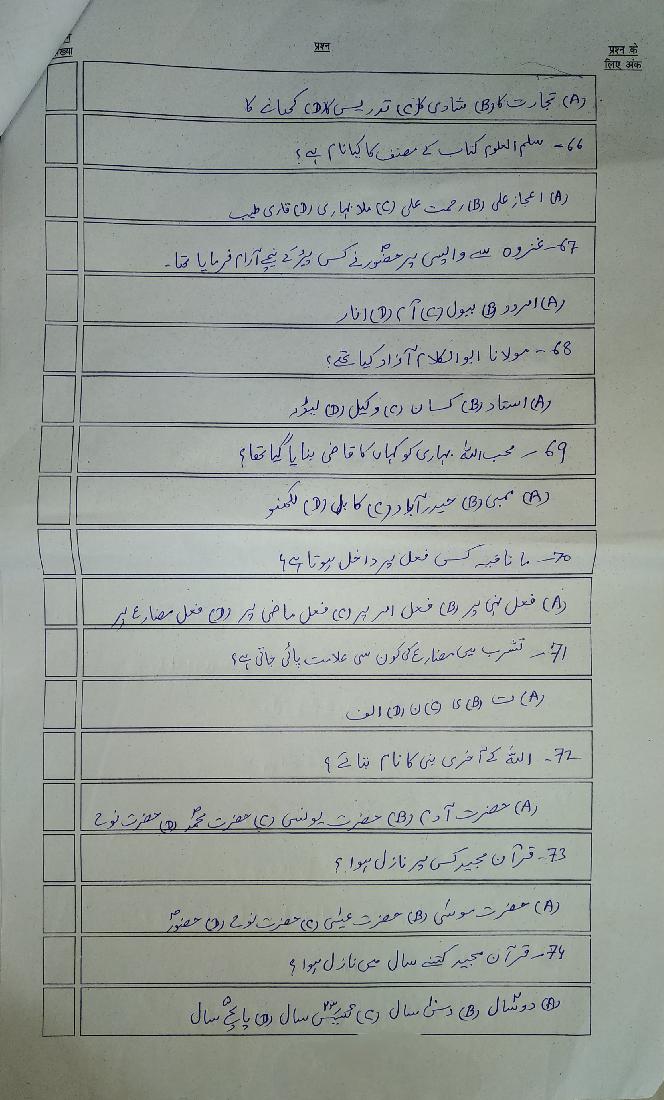 प्रश्न
प्रश्न के
लिए अंक
(A) تجارت کا (B) شادی کا (C) تدریس کا (D) کھانے کا
66- سلم العلوم کتاب کے مصنف کا کیا نام ہے؟
(A) اعجاز علی (B) رحمت علی (C) ملا بہاری (D) قاری طیب
67- غزوہ سے واپسی پر حضورؐ نے کس پیڑ کے نیچے آرام فرمایا تھا۔
(A) امرود (B) ببول (C) آم (D) انار
68- مولانا ابوالکلام آزاد کیا تھے؟
(A) استاد (B) کسان (C) وکیل (D) لیڈر
69- محب اللہ بہاری کو کہاں کا قاضی بنایا گیا تھا؟
(A) ممبئ (B) حیدرآباد (C) کابل (D) لکھنو
70- ما نافیہ کس فعل پر داخل ہوتا ہے؟
(A) فعل نہی پر (B) فعل امر پر (C) فعل ماضی پر (D) فعل مضارع پر
71- تشرب میں مضارع کی کون سی علامت پائی جاتی ہے؟
(A) ت (B) ی (C) ن (D) الف
72- اللہ کے آخری نبی کا نام بتائے؟
(A) حضرت آدم (B) حضرت یونس (C) حضرت محمدؐ (D) حضرت نوح
73- قرآن مجید کس پر نازل ہوا؟
(A) حضرت موسیٰ (B) حضرت عیسیٰ (C) حضرت نوح (D) حضورؐ
74- قرآن مجید کتنے سال میں نازل ہوا؟
(A) دو سال (B) دس سال (C) تیئیس سال (D) پانچ سال